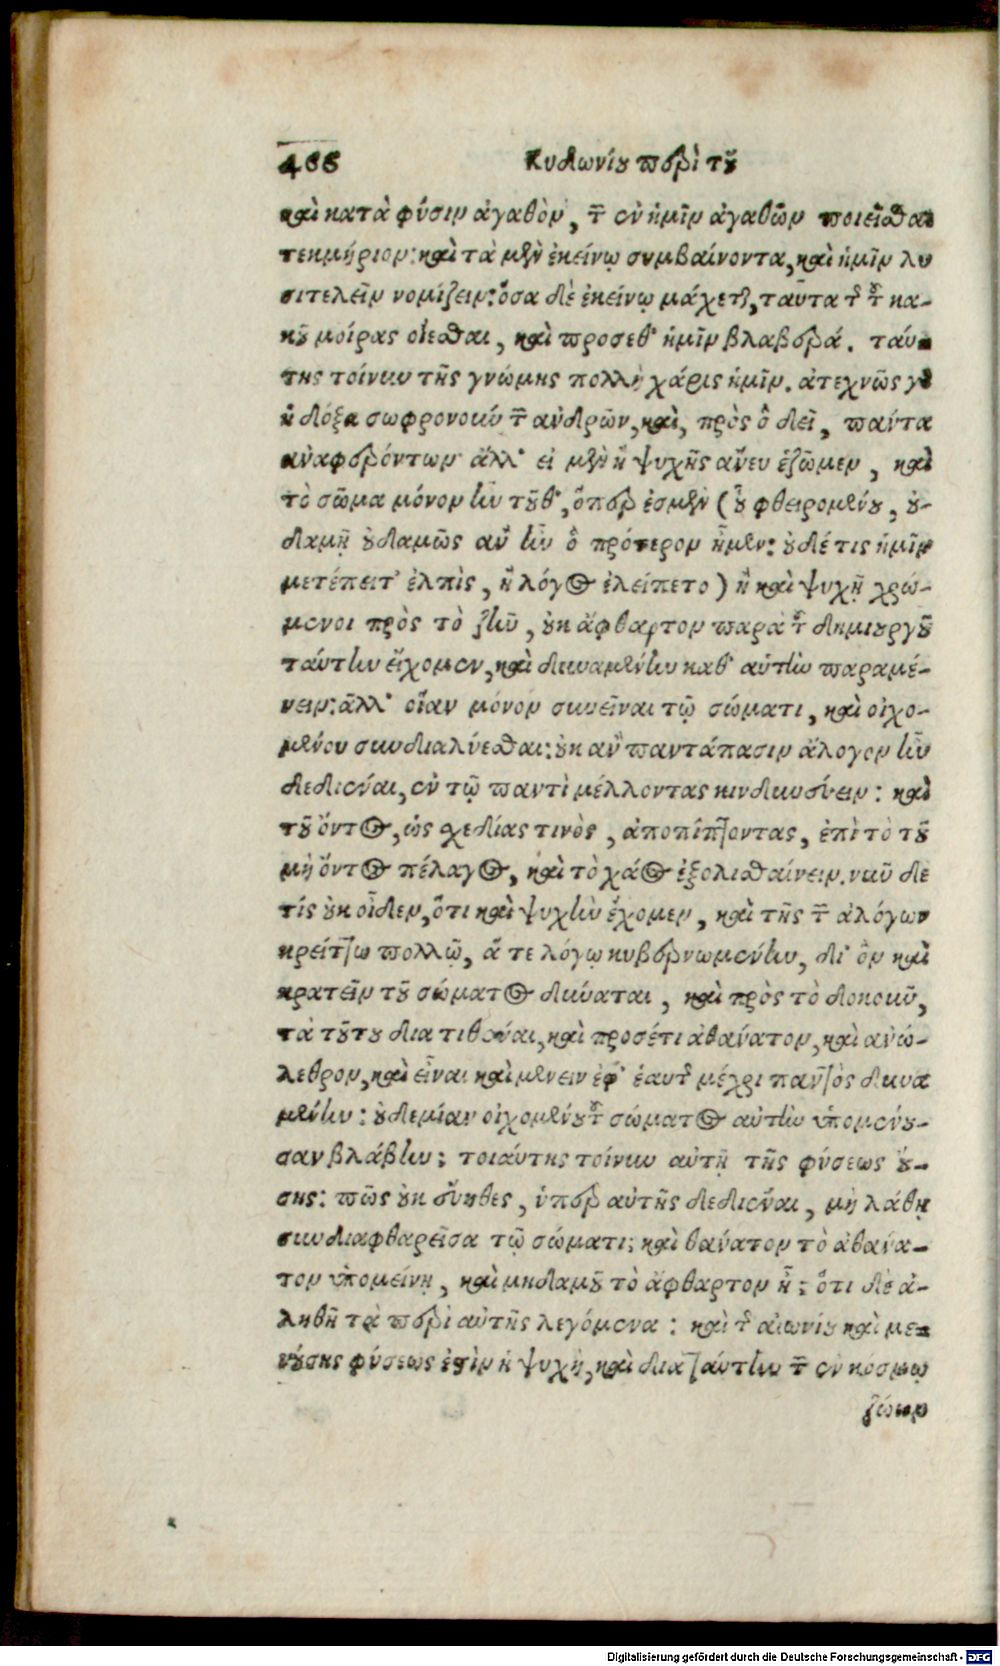 466 Κυδωνίου περὶ τοῦ
καὶ κατὰ φύσιν ἀγαθὸν, τῶν ἐν ἡμῖν ἀγαθῶν ποιεῖσθαι
τεκμήριον: καὶ τὰ μὲν ἐκείνῳ συμβαίνοντα, καὶ ἡμῖν λυ
σιτελεῖν νομίζειν: ὅσα δὲ ἐκείνῳ μάχεται, ταῦτα τῆς τοῦ κα-
κοῦ μοίρας οἴεσθαι, καὶ προσέθ' ἡμῖν βλαβερά. ταύ-
της τοίνυν τῆς γνώμης πολλὴ χάρις ἡμῖν. ἀτεχνῶς γὰρ
ἡ δόξα σωφρονούντων ἀνδρῶν, καὶ, πρὸς ὃ δεῖ, πάντα
ἀναφερόντων ἀλλ' εἰ μὲν ἢ ψυχῆς ἄνευ ἐζῶμεν, καὶ
τὸ σῶμα μόνον ἦν τοῦθ', ὅπερ ἐσμὲν (οὗ φθειρομένου, οὐ-
δαμῇ οὐδαμῶς ἂν ἦν ὃ πρότερον ἦμεν: οὐδέ τις ἡμῖν
μετέπειτ' ἐλπὶς, ἢ λόγος ἐλείπετο) ἢ καὶ ψυχῇ χρώ-
μενοι πρὸς τὸ ζῆν, οὐκ ἄφθαρτον παρὰ τοῦ δημιουργοῦ
ταύτην εἴχομεν, καὶ δυναμένην καθ' αὑτὴν παραμέ-
νειν: ἀλλ' οἵαν μόνον συνεῖναι τῷ σώματι, καὶ οἰχο-
μένου συνδιαλύεσθαι: οὐκ ἂν παντάπασιν ἄλογον ἦν
δεδιέναι, ἐν τῷ παντὶ μέλλοντας κινδυνεύειν: καὶ
τοῦ ὄντος, ὡς σχεδίας τινὸς, ἀποπίπτοντας, ἐπὶ τὸ τοῦ
μὴ ὄντος πέλαγος, καὶ τὸ χάος ἐξολισθαίνειν. νῦν δὲ
τίς οὐκ οἶδεν, ὅτι καὶ ψυχὴν ἔχομεν, καὶ τῆς τῶν ἀλόγων
κρείττω πολλῷ, ἅ τε λόγῳ κυβερνωμένην, δι' ὃν καὶ
κρατεῖν τοῦ σώματος δύναται, καὶ πρὸς τὸ δοκοῦν,
τὰ τούτου διατιθέναι, καὶ προσέτι ἀθάνατον, καὶ ἀνώ-
λεθρον, καὶ εἶναι καὶ μένειν ἐφ' ἑαυτῆς μέχρι παντὸς δυνα
μένην: οὐδεμίαν οἰχομένου τοῦ σώματος αὐτὴν ὑπομένου-
σαν βλάβην; τοιαύτης τοίνυν αὐτῇ τῆς φύσεως οὔ-
σης: πῶς οὐκ εὔηθες, ὑπὲρ αὐτῆς δεδιέναι, μὴ λάθῃ
συνδιαφθαρεῖσα τῷ σώματι: καὶ θάνατον τὸ ἀθάνα-
τον ὑπομείνῃ, καὶ μηδαμοῦ τὸ ἄφθαρτον ᾖ: ὅτι δὲ ἀ-
ληθῆ τὰ περὶ αὐτῆς λεγόμενα: καὶ τῆς αἰωνίου καὶ με-
νούσης φύσεως ἐστὶν ἡ ψυχὴ, καὶ διὰ ταύτην τῶν ἐν κόσμῳ
ζώων